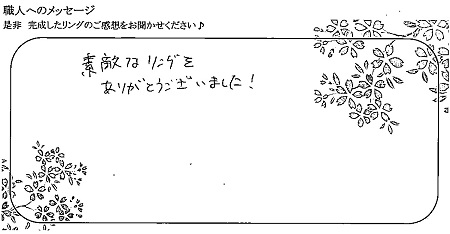 職人へのメッセージ
是非 完成したリングのご感想をお聞かせください♪
素敵なリングを
ありがとうございました！